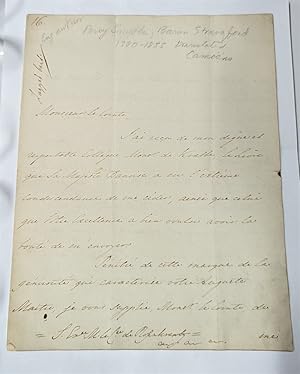 16.
Eng. author
Percy Smythe, Baron Strangford
1780-1855 Translator
Camões
Monsieur le Comte,
J'ai reçu de mon digne et
respectable Collègue Monsr. de le
que Sa Majesté a eu l'extrême
condescendance de me céder, ainsi que celui
que Votre Excellence a bien voulu avoir la
bonté de m'envoyer.
Pénétré de cette marque de la
générosité qui caractérise votre Auguste
Maître, je vous supplie Monsr. le Comte de
= S. Exce. M. le Cte. de =
me